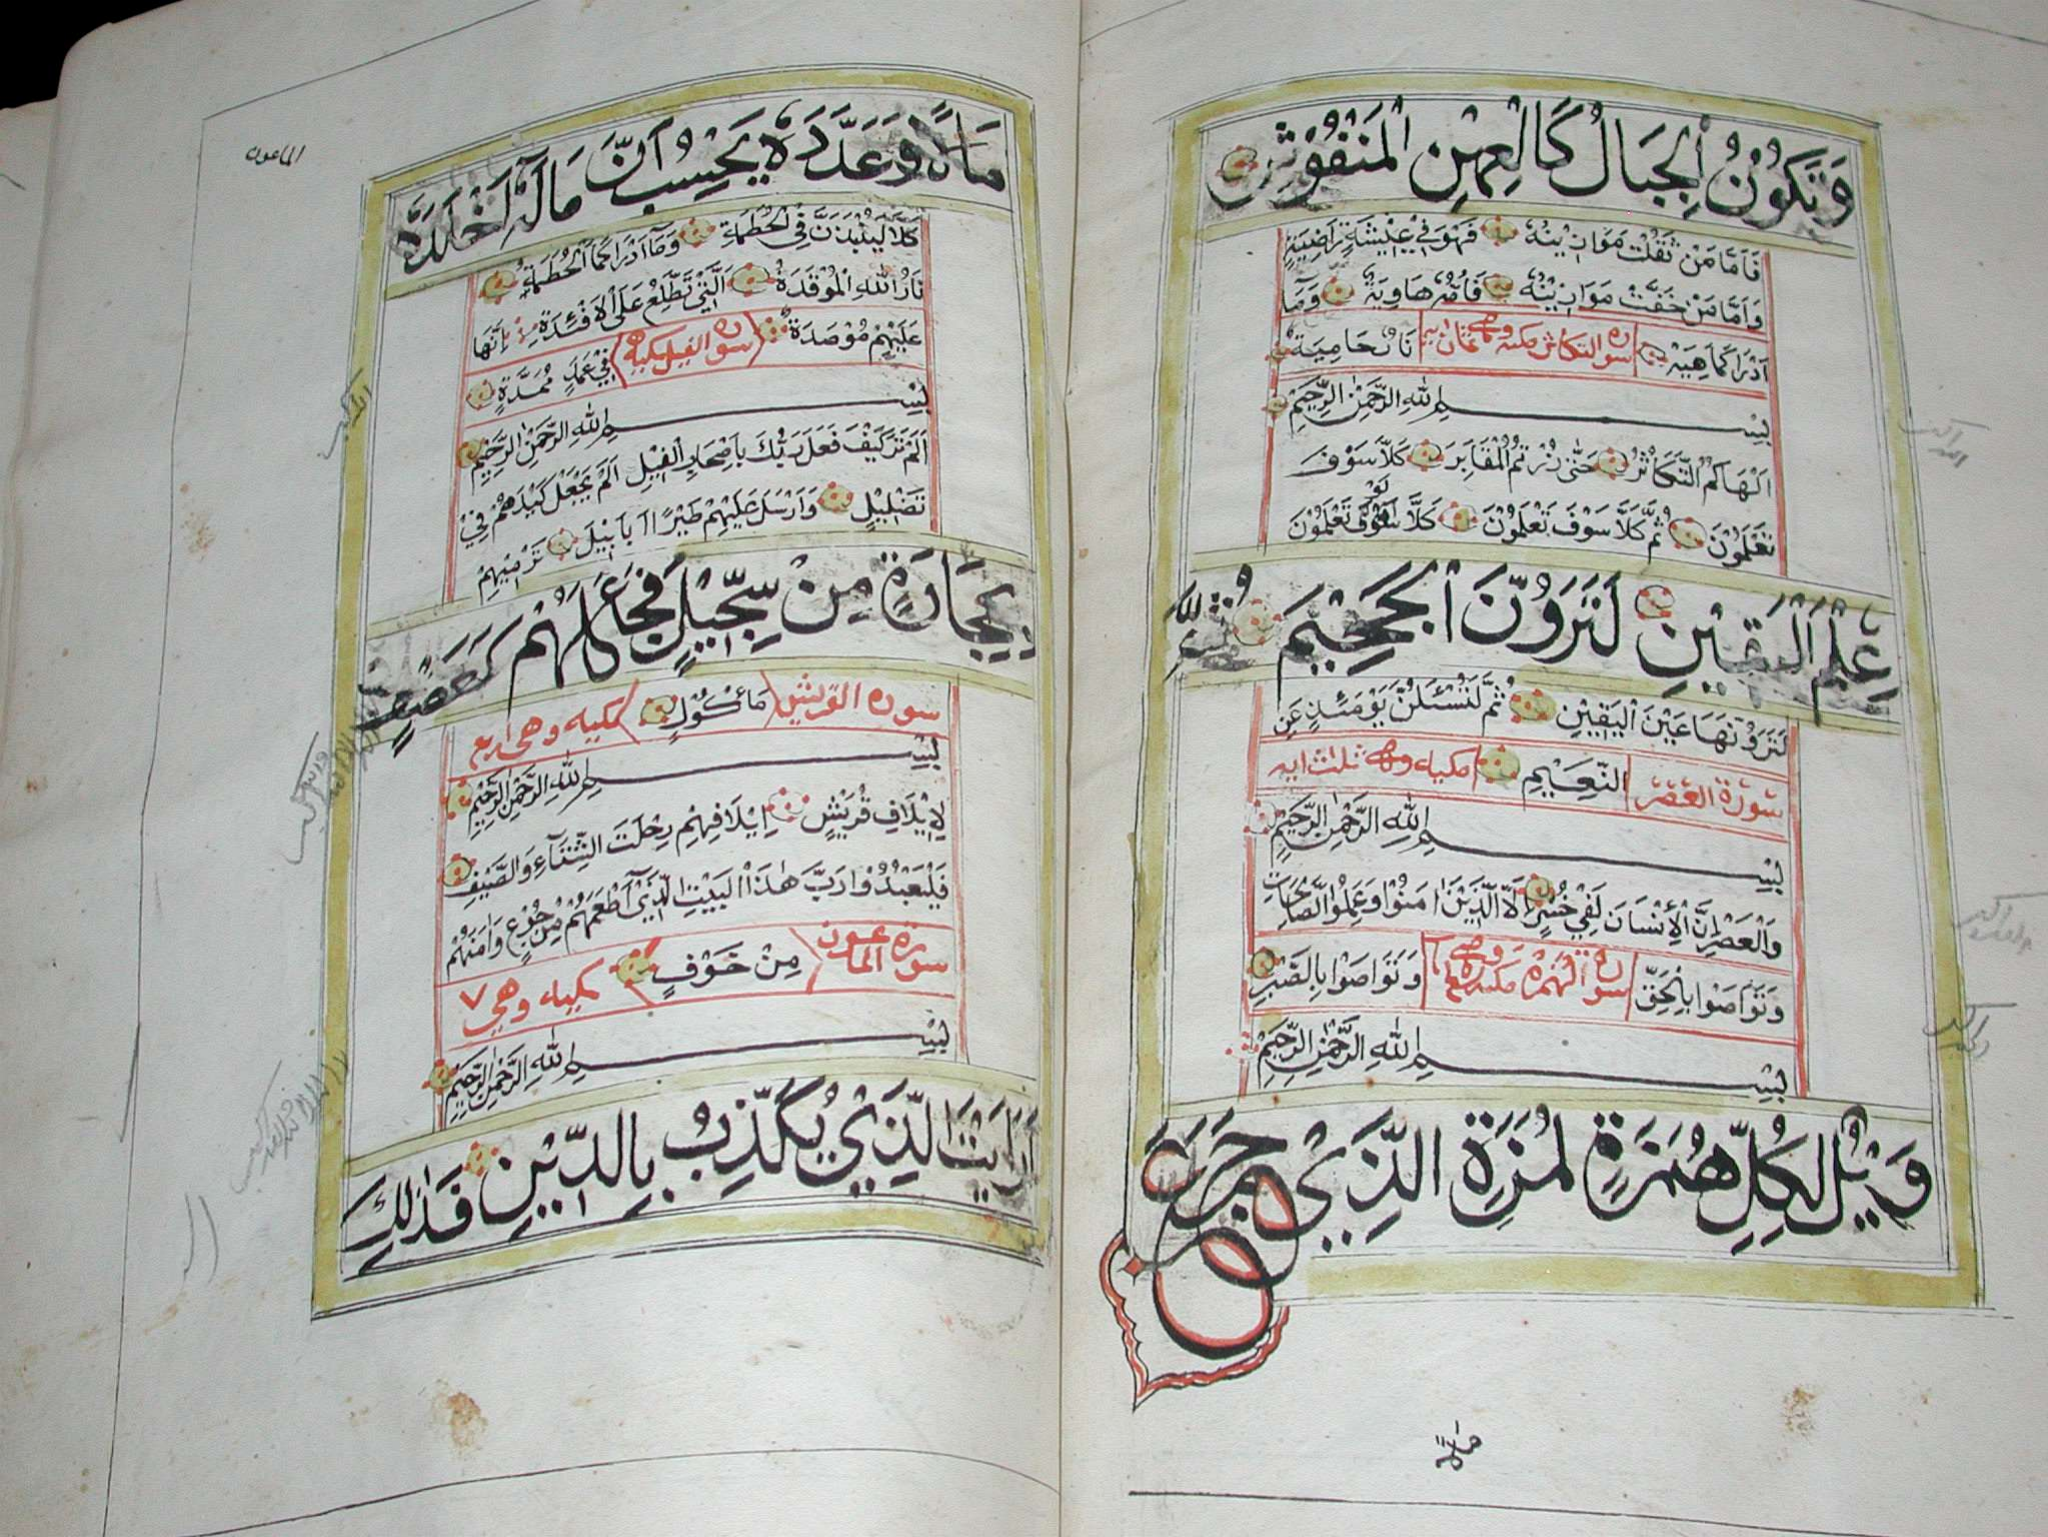 وَتَكُونُ الْجِبَالُ كَالْعِهْنِ الْمَنْفُوشِ
فَاَمَّا مَنْ ثَقُلَتْ مَوَازِينُهُ فَهُوَ فِي عِيْشَةٍ رَاضِيَةٍ
وَاَمَّا مَنْ خَفَّتْ مَوَازِينُهُ فَاُمُّهُ هَاوِيَةٌ وَمَا
اَدْرَاكَ مَاهِيَهْ نَارٌ حَامِيَةٌ سورة التكاثر مكيه وهى ثمان ايه
بِسْمِ اللهِ الرَّحْمٰنِ الرَّحِيمِ
اَلْهَاكُمُ التَّكَاثُرُ حَتّٰى زُرْتُمُ الْمَقَابِرَ كَلَّا سَوْفَ
تَعْلَمُوْنَ ثُمَّ كَلَّا سَوْفَ تَعْلَمُوْنَ كَلَّا لَوْ تَعْلَمُوْنَ
عِلْمَ الْيَقِيْنِ لَتَرَوُنَّ الْجَحِيْمَ ثُمَّ
لَتَرَوُنَّهَا عَيْنَ الْيَقِيْنِ ثُمَّ لَتُسْئَلُنَّ يَوْمَئِذٍ عَنِ
سورة العصر النَّعِيْمِ مكيه وهى ثلث ايه
بِسْمِ اللهِ الرَّحْمٰنِ الرَّحِيمِ
وَالْعَصْرِ اِنَّ الْاِنْسَانَ لَفِي خُسْرٍ اِلَّا الَّذِيْنَ اٰمَنُوْا وَعَمِلُوا الصَّالِحَاتِ
وَتَوَاصَوْا بِالْحَقِّ وَتَوَاصَوْا بِالصَّبْرِ سورة الهمزه مكيه وهى
بِسْمِ اللهِ الرَّحْمٰنِ الرَّحِيمِ
وَيْلٌ لِكُلِّ هُمَزَةٍ لُمَزَةٍ الَّذِيْ جَمَعَ
الماعون
مَالًا وَعَدَّدَهُ يَحْسِبُ اَنَّ مَالَهُ اَخْلَدَهُ
كَلَّا لَيُنْبَذَنَّ فِي الْحُطَمَةِ وَمَا اَدْرَاكَ مَا الْحُطَمَةُ
نَارُ اللهِ الْمُوْقَدَةُ الَّتِيْ تَطَّلِعُ عَلَى الْاَفْئِدَةِ اِنَّهَا
عَلَيْهِمْ مُوْصَدَةٌ فِيْ عَمَدٍ مُمَدَّدَةٍ سورة الفيل مكيه
بِسْمِ اللهِ الرَّحْمٰنِ الرَّحِيمِ
اَلَمْ تَرَ كَيْفَ فَعَلَ رَبُّكَ بِاَصْحَابِ الْفِيْلِ اَلَمْ يَجْعَلْ كَيْدَهُمْ فِيْ
تَضْلِيْلٍ وَاَرْسَلَ عَلَيْهِمْ طَيْرًا اَبَابِيْلَ تَرْمِيْهِمْ
بِحِجَارَةٍ مِنْ سِجِّيْلٍ فَجَعَلَهُمْ كَعَصْفٍ
سورة القريش مَأْكُوْلٍ مكيه وهى اربع
بِسْمِ اللهِ الرَّحْمٰنِ الرَّحِيمِ
لِاِيْلَافِ قُرَيْشٍ اِيْلَافِهِمْ رِحْلَتَ الشِّتَآءِ وَالصَّيْفِ
فَلْيَعْبُدُوْا رَبَّ هٰذَا الْبَيْتِ الَّذِيْ اَطْعَمَهُمْ مِنْ جُوْعٍ وَاٰمَنَهُمْ
سورة الماعون مِنْ خَوْفٍ مكيه وهي ٧
بِسْمِ اللهِ الرَّحْمٰنِ الرَّحِيمِ
اَرَاَيْتَ الَّذِيْ يُكَذِّبُ بِالدِّيْنِ فَذٰلِكَ